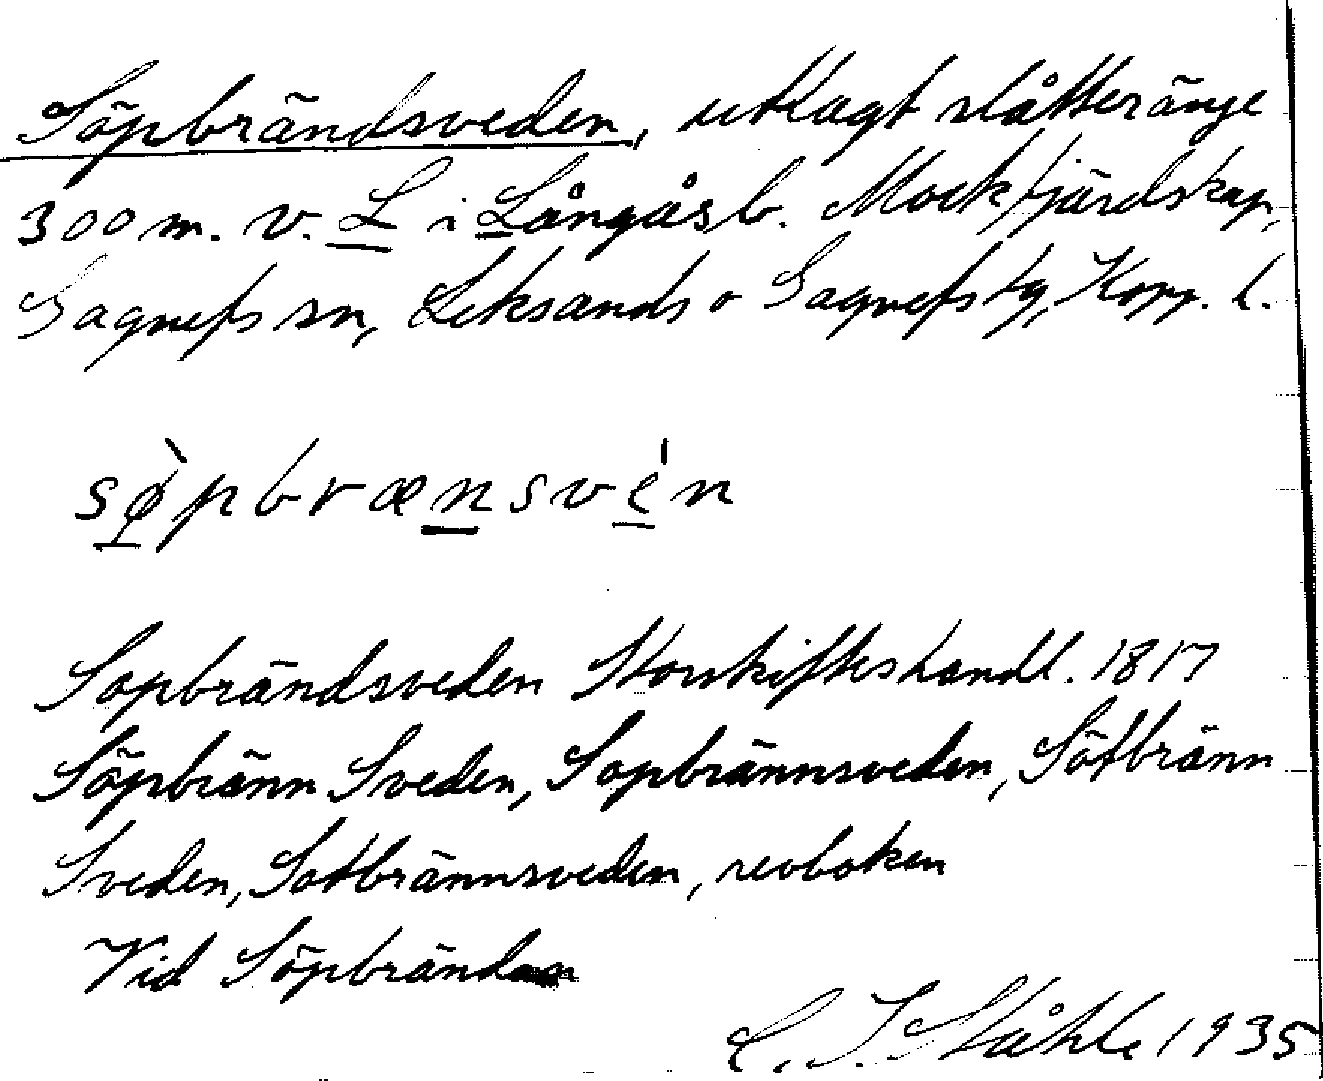 Söpbrändsveden, utlagt slåtteränge
300 m. v. L i Långåsb. Mockfjärdskap,
Gagnefs sn, Leksands o Gagnefs tg, Kopp. l.
sø̀pbrænsvén
Sopbrändsveden Storskifteshandl. 1817
Söpbränn Sveden, Sopbrännsveden, Sötbränn
Sveden, Sotbrännsveden, revboken
Vid Söpbrändan
C. I. Ståhle 1935